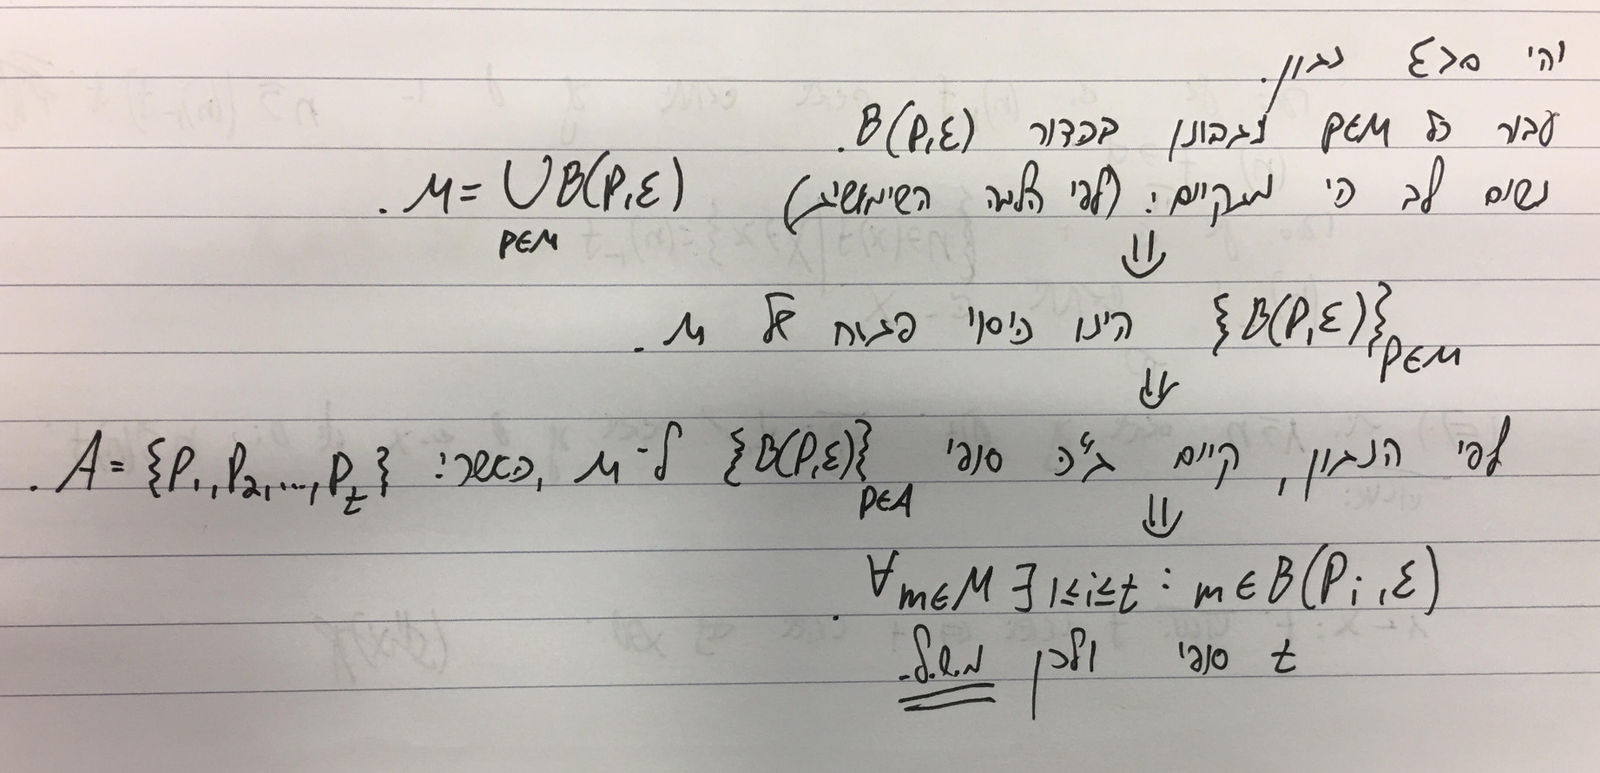 יהי 0<ε נתון.
עבור כל p∈M נתבונן בכדור B(p,ε).
נשים לב כי מתקיים: (לפי הלמה השימושית) M = ⋃_{p∈M} B(p,ε).
⇓
{B(p,ε)}_{p∈M} הינו כיסוי פתוח של M.
⇓
לפי הנתון, קיים ת"כ סופי {B(p,ε)}_{p∈A} ל-M, כאשר: A = {P₁, P₂, ..., P_t}.
⇓
∀m∈M ∃1≤i≤t : m∈B(P_i, ε).
t סופי ולכן מ.ש.ל.